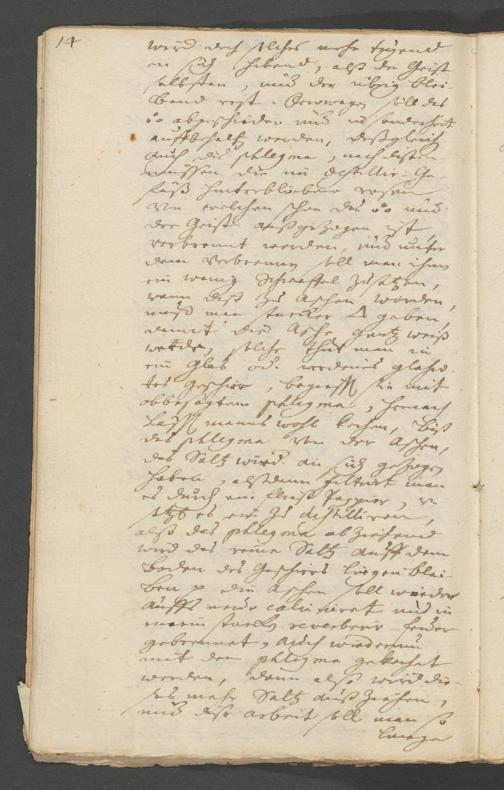 14
wird doch solches mehr
in sich habend, alß der Geist
selbsten, und der übrig blei-
bend rest. Derowegen soll das
abgescheiden und in sonderheit
auffbehalten werden, deßgleichen
auch das phlegma, nach diesem
müssen die im destillir-Ge-
fäß hinterbliebene
von welchen schon das und
der Geist außgezogen ist
verbrennt werden, und unter
dem verbrennen soll man ihnen
ein wenig Schweffel zusetzen,
wann diß zu Aschen worden,
muß man starcker △ geben
damit die Asche gantz weiß
werde, solche thut man in
ein Glas od. glasur-
tes geschirr, sie mit
obbesagtem phlegma, hernach
last manns wohl kochen, biß
das phlegma von der Aschen,
das Saltz wird an sich gezogen
haben, alßdann filtrirt man
es durch ein fließ Pappier,
setzt es ein zu destilliren,
also das phlegma abziehend
wird das reine Saltz auff dem
boden des Geschirrs liegen blei-
ben die Aschen soll wieder
auffs neue calciniret und in
einem starck reverberir feuer
gebrennet, auch wiederum
mit dem phlegma gekochet
werden, dann also wird die-
ses mehr Saltz außziehen,
und diese arbeit soll man so
lange